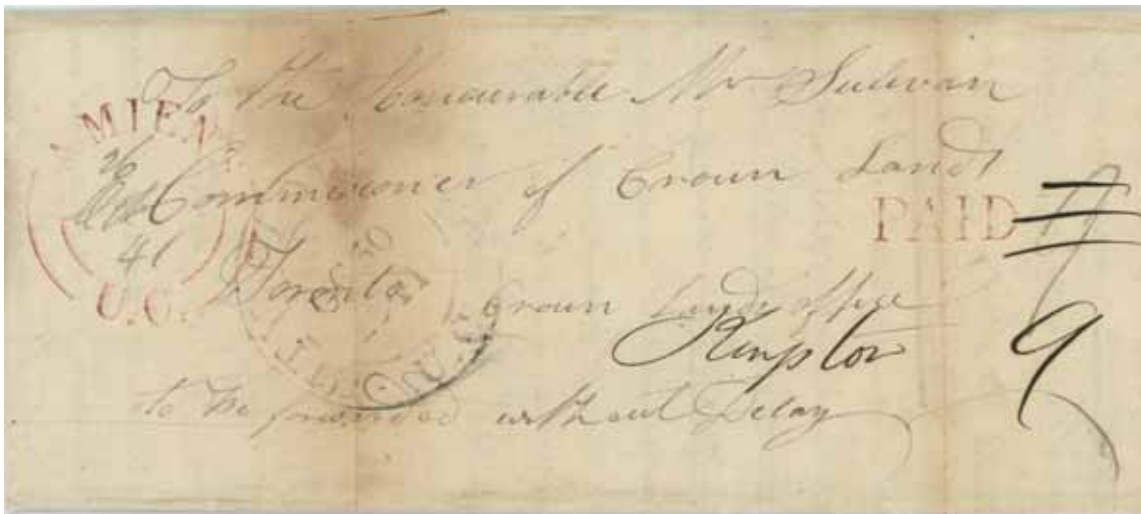 To the Honourable Mr Sulivan
AMIENS
26
Commissioner of Crown Lands
PAID
41
U.C.
Toronto
Crown Lands office
Kingston 9
to be forwarded without Delay